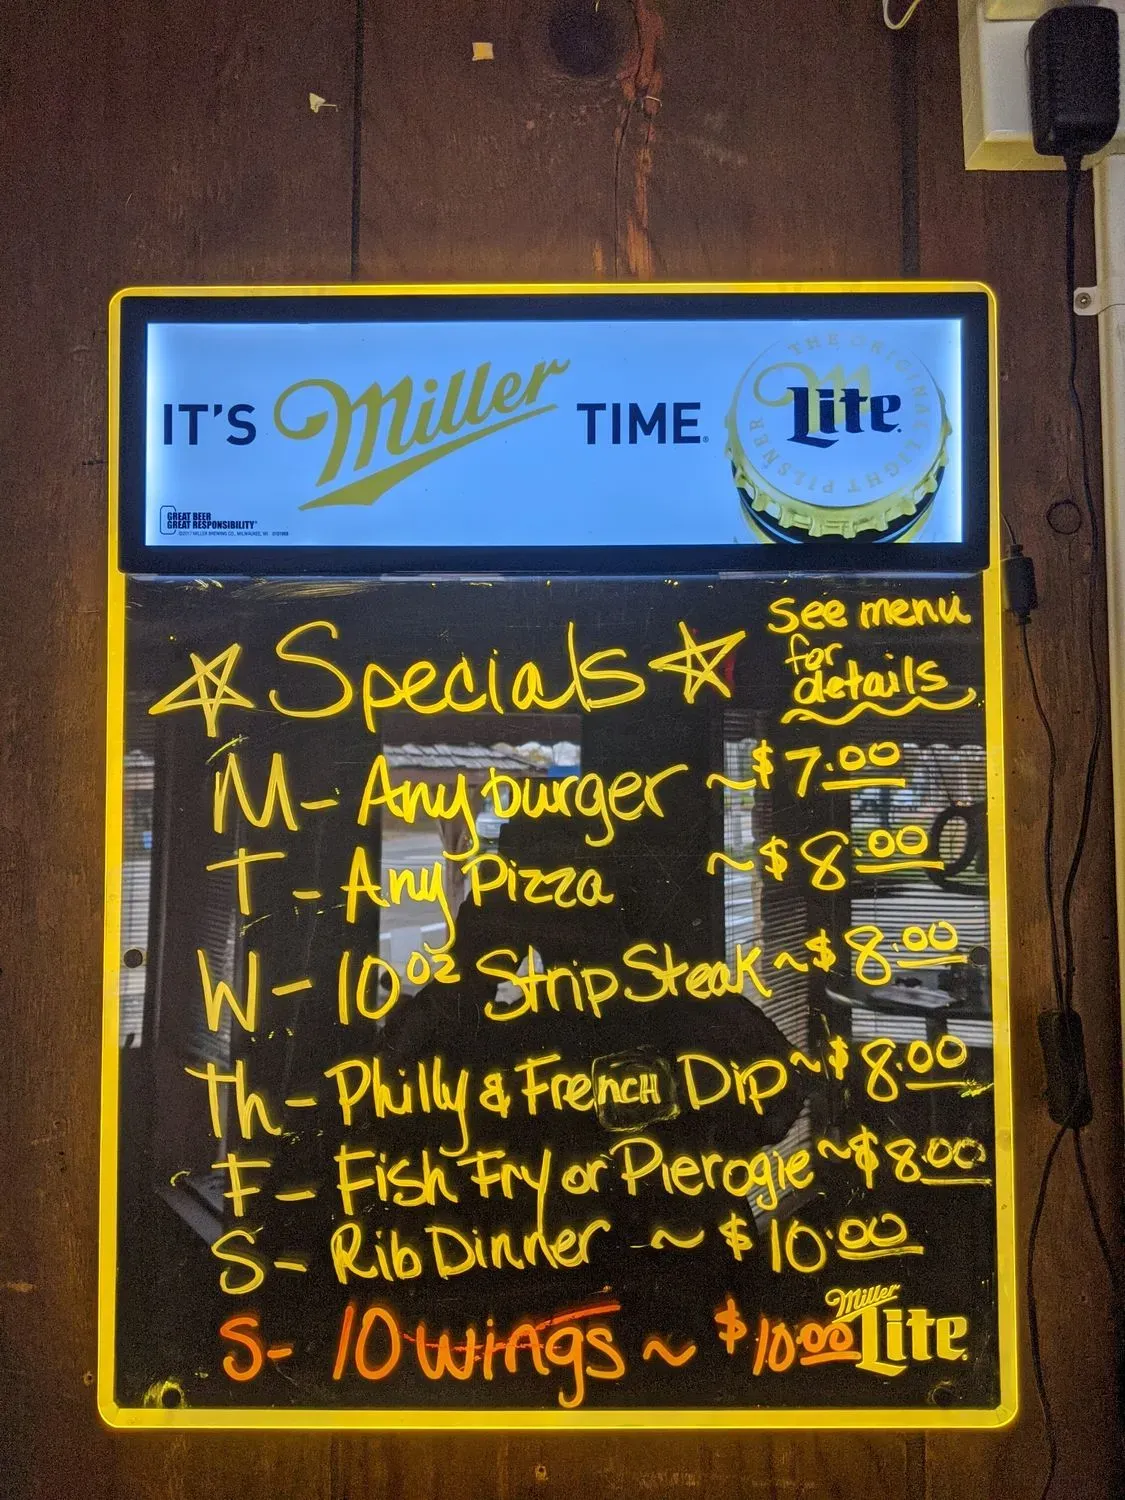 IT'S Miller TIME.
THE ORIGINAL LIGHT PILSNER
Lite
GREAT BEER
GREAT RESPONSIBILITY
©2017 MILLER BREWING CO., MILWAUKEE, WI
☆ Specials ☆
See menu
for
details
M - Any burger ~ $7.00
T - Any Pizza ~ $8.00
W - 10oz Strip Steak ~ $8.00
Th - Philly & French Dip ~ $8.00
F - Fish Fry or Pierogie ~ $8.00
S - Rib Dinner ~ $10.00
S - 10 wings ~ $10.00
Miller
Lite